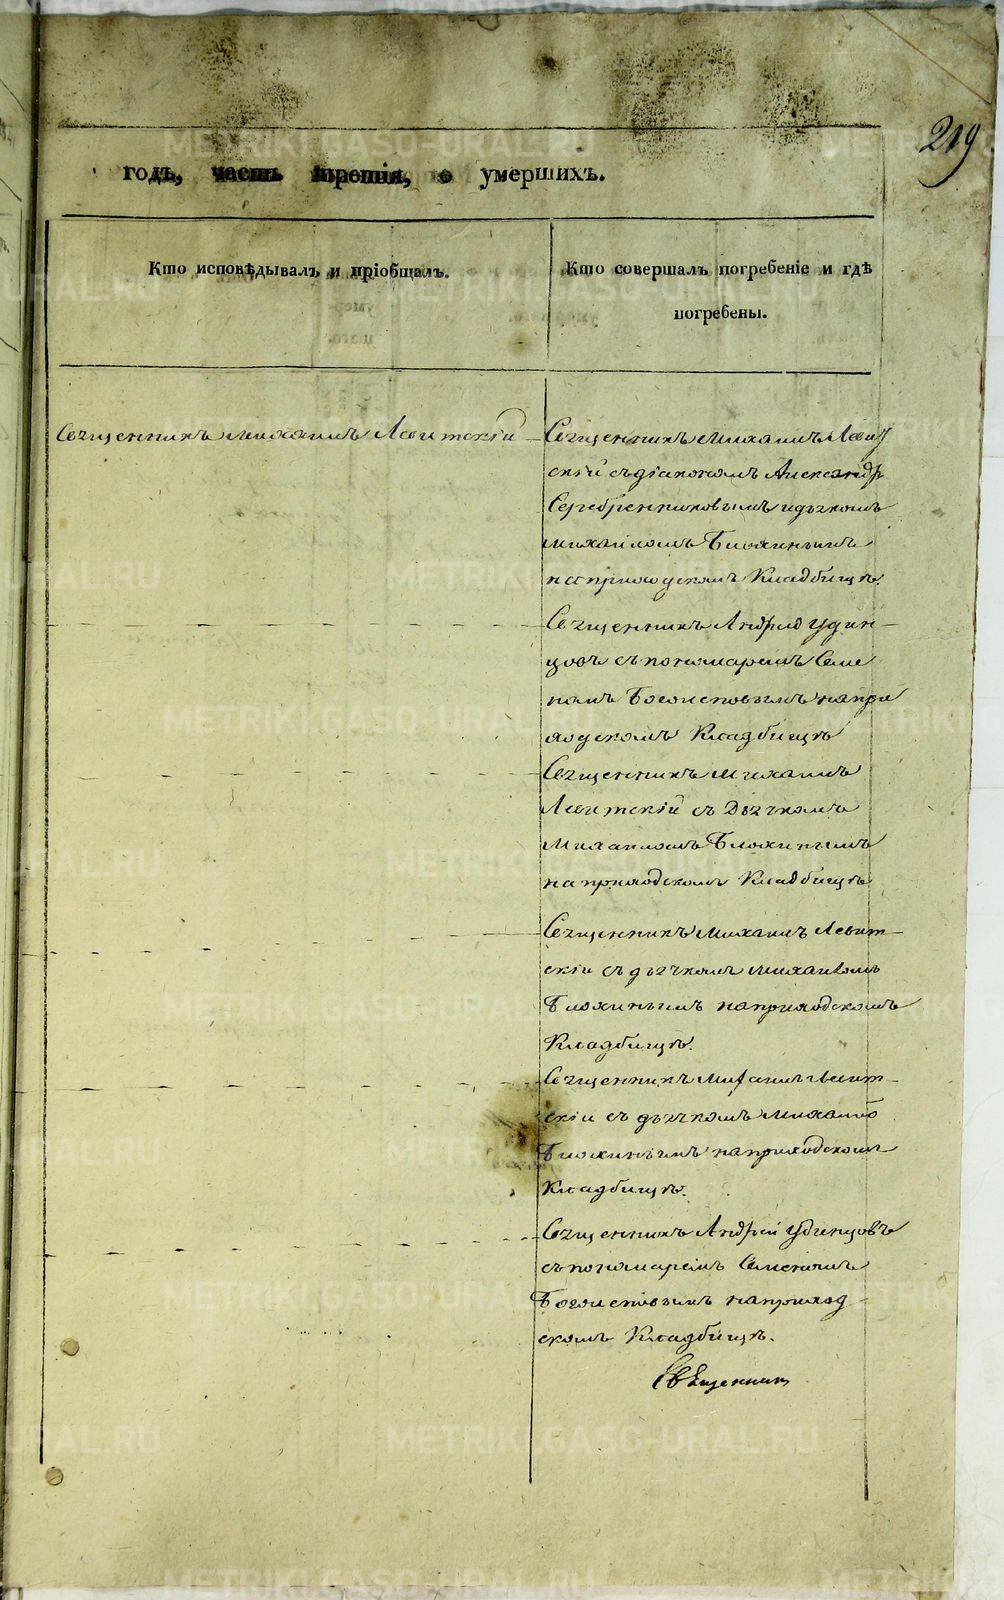 219
годъ, часть третія, о умершихъ.
Кто исповѣдывалъ и пріобщалъ.
Кто совершалъ погребеніе и гдѣ
погребены.
Священникъ Михаилъ Левитскій
Священникъ Михаилъ Левит
скій съ діакономъ Александр
Серебренниковымъ и дьячкомъ
Михаиломъ Блохинымъ
на приходскомъ Кладбищѣ.
Священникъ Андрей Удин
цовъ съ пономаремъ Семе
номъ на при
ходскомъ Кладбищѣ
Священникъ Михаилъ
Левитскій съ Дьячкомъ
Михаиломъ Блохинымъ
на приходскомъ Кладбищѣ
Священникъ Михаилъ Левит
скій съ дьячкомъ Михаиломъ
Блохинымъ на приходскомъ
Кладбищѣ.
Священникъ Михаилъ Левит
скій съ дьячкомъ Михаило
Блохинымъ на приходскомъ
Кладбищѣ.
Священникъ Андрей Удинцовъ
съ пономаремъ Семеномъ
на приход
скомъ Кладбищѣ.
Священникъ
METRIKI.GASO-URAL.RU